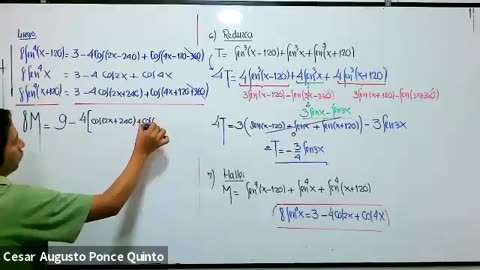 Luego
8Sen⁴(x-120) = 3-4Cos(2x-240)+Cos(4x-120-360)
8Sen⁴x = 3-4Cos2x+Cos4x
8Sen⁴(x+120) = 3-4Cos(2x+240)+Cos(4x+120+360)
8M = 9-4[Cos(2x+240)+Cos(
6) Reduzca
T = Sen³(x-120)+Sen³x+Sen³(x+120)
4T = 4Sen³(x-120)+4Sen³x+4Sen³(x+120)
3Sen(x-120)-Sen(3x-360)
3Sen(x+120)-Sen(3x+360)
3Senx-Sen3x
0
4T = 3(Sen(x-120)+Senx+Sen(x+120))-3Sen3x
T = -3/4 Sen3x
7) Halle:
M = Sen⁴(x-120)+Sen⁴x+Sen⁴(x+120)
8Sen⁴x = 3-4Cos2x+Cos4x
Cesar Augusto Ponce Quinto